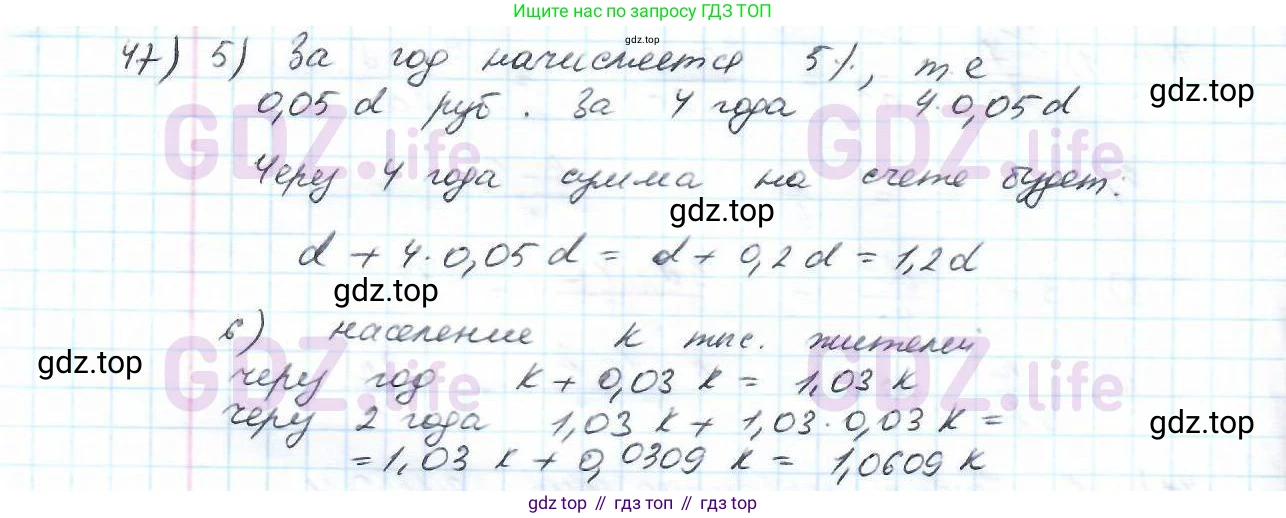 Ищите нас по запросу ГДЗ ТОП
gdz.top
47) 5) За год начисляется 5%, т.е
0,05 d руб. За 4 года 4·0,05 d
gdz.top
GDZ.life GDZ.life
Через 4 года сумма на счете будет:
gdz.top
d + 4·0,05 d = d + 0,2 d = 1,2 d
gdz.top
6) население k тыс. жителей
gdz.top
через год k + 0,03 k = 1,03 k
GDZ.life GDZ.life
через 2 года 1,03 k + 1,03·0,03 k =
gdz.top
= 1,03 k + 0,0309 k = 1,0609 k
gdz.top // гдз топ // гдз.топ